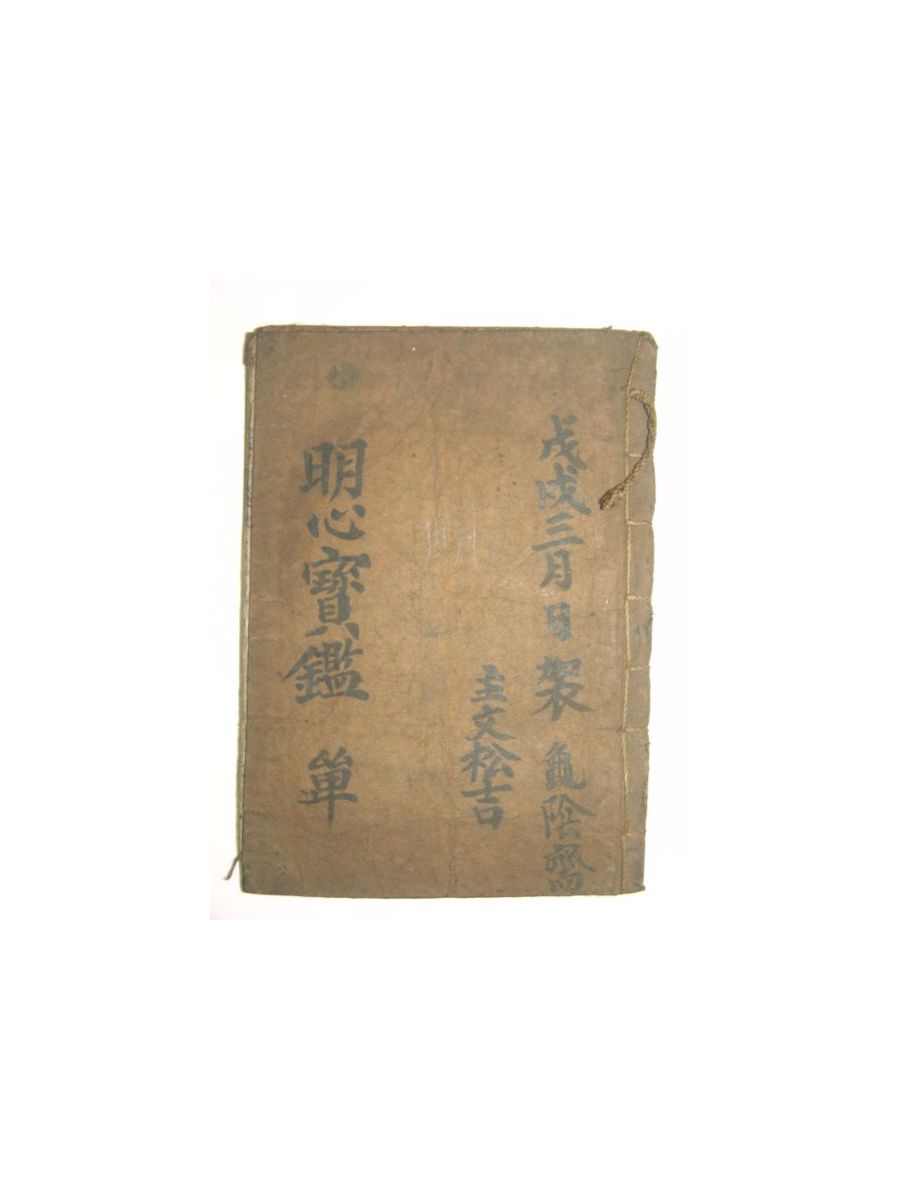 戊戌三月日製 龜陰齋
主文松吉
明心寶鑑 單